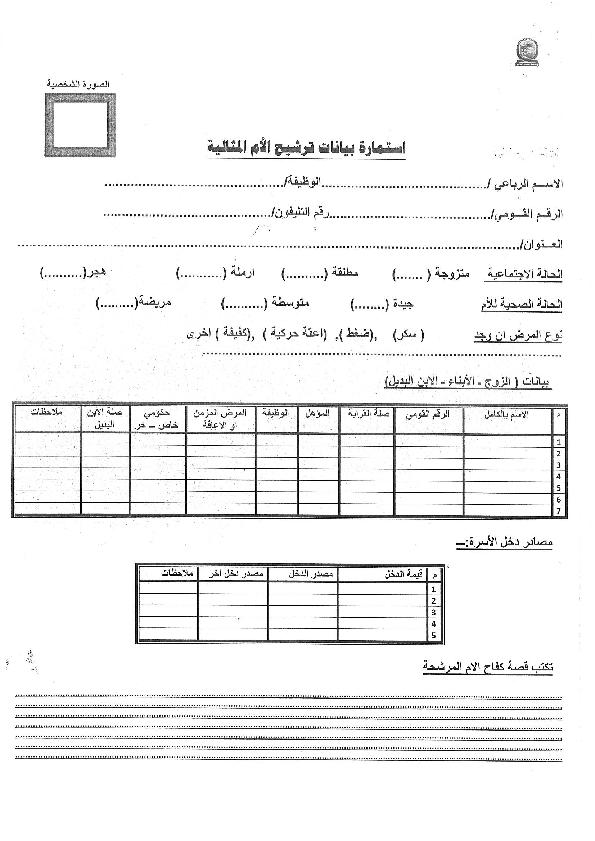 الصورة الشخصية
استمارة بيانات ترشيح الأم المثالية
الاسم الرباعي /..................................الوظيفة/..................................
الرقم القومي/..................................رقم التليفون/..................................
العنوان/....................................................................
الحالة الاجتماعية متزوجة (.......) مطلقة (..........) ارملة (..........) هجر(..........)
الحالة الصحية للأم جيدة (........) متوسطة (..........) مريضة(.........)
نوع المرض ان وجد ( سكر) ,(ضغط ), (اعاقة حركية ) ,(كفيفة ) اخرى
....................................................................
بيانات ( الزوج - الأبناء - الابن البديل)
م الاسم بالكامل الرقم القومي صلة القرابة المؤهل الوظيفة المرض المزمن او الاعاقة حكومي خاص – حر صلة الابن البديل ملاحظات
1
2
3
4
5
6
7
مصادر دخل الأسرة:ــ
م قيمة الدخل مصدر الدخل مصدر دخل آخر ملاحظات
1
2
3
4
5
تكتب قصة كفاح الام المرشحة